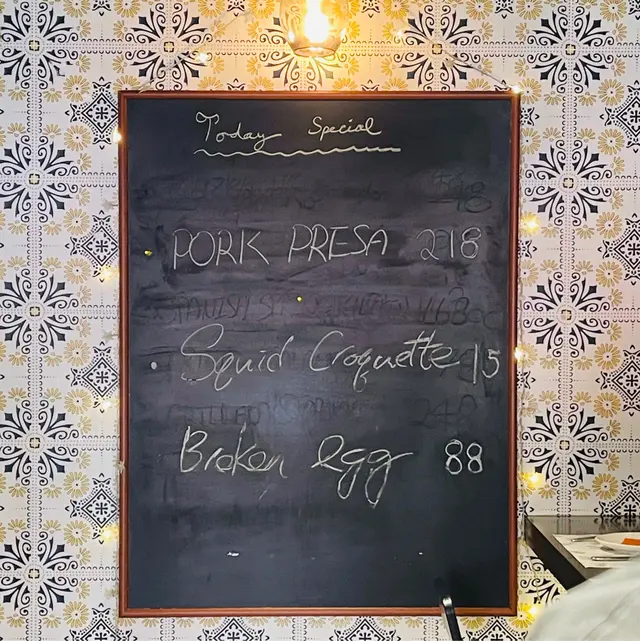 Today Special
PORK PRESA 218
Squid Croquette 15
Broken egg 88